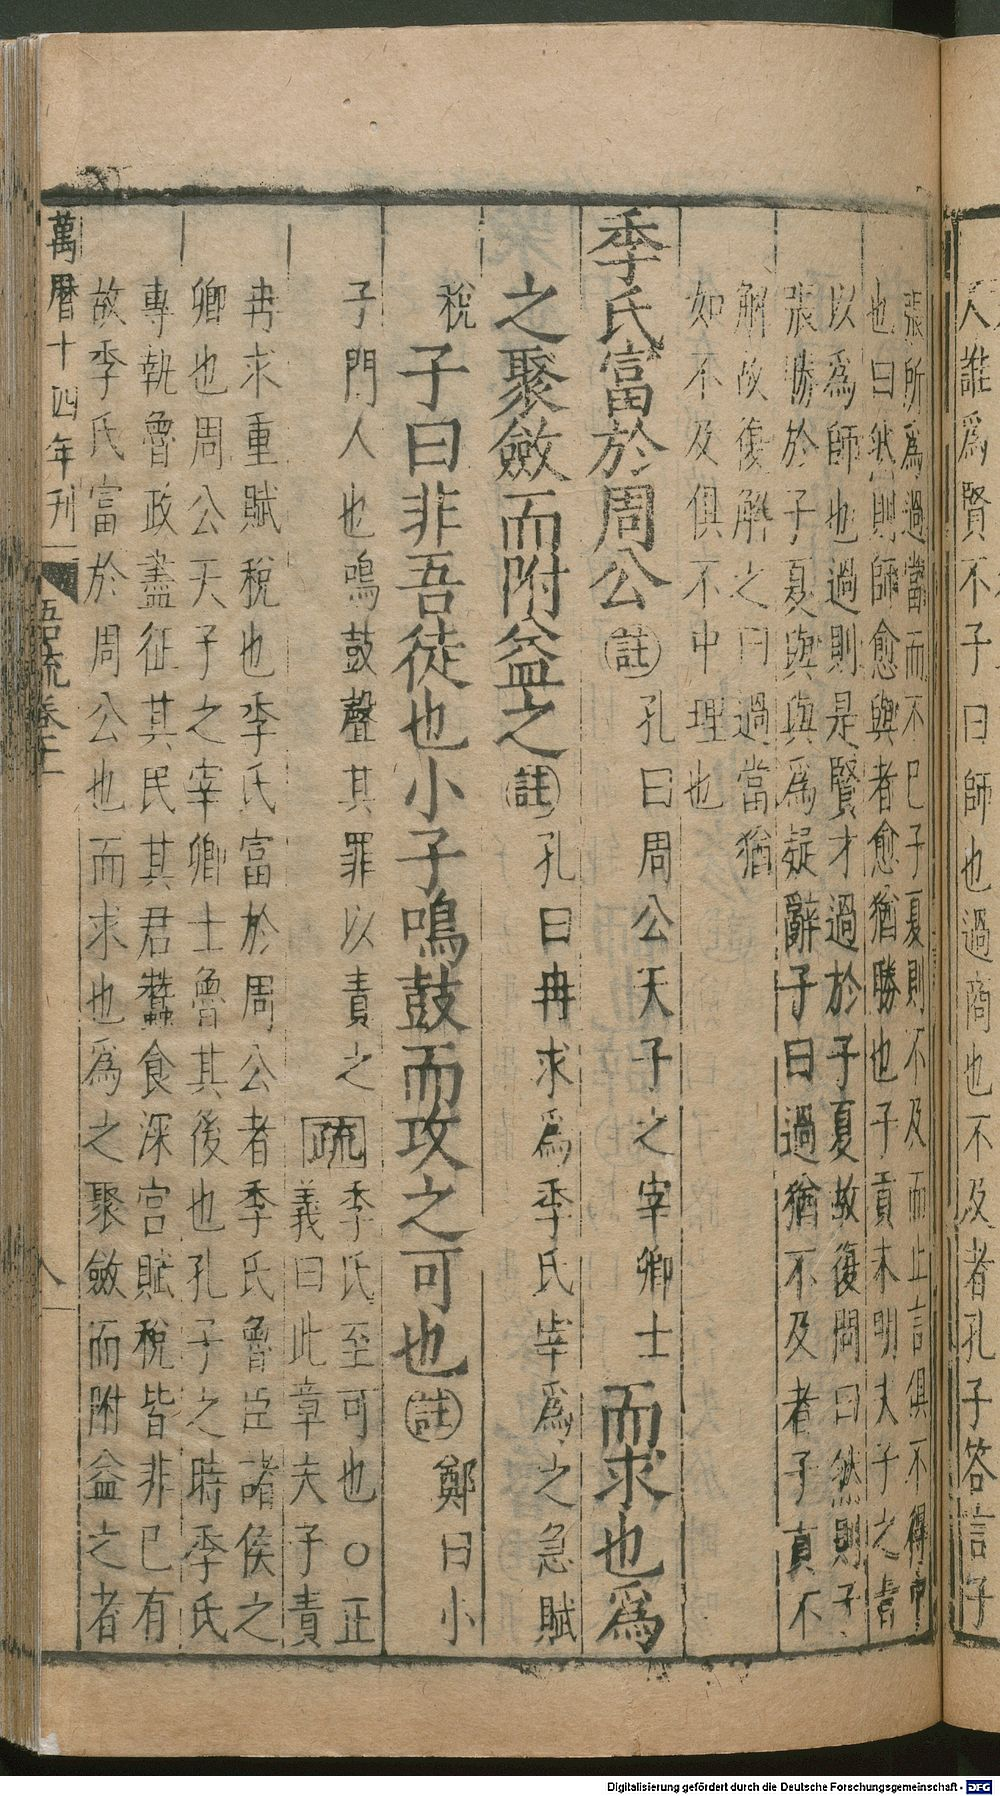 人誰爲賢不子曰師也過商也不及者孔子答言子
張所爲過當而不已子夏則不及而止言俱不得中
也曰然則師愈與者愈猶勝也子貢未明夫子之旨
以爲師也過則是賢才過於子夏故復問曰然則子
張勝於子夏與與爲疑辭子曰過猶不及者子貢不
解故復解之曰過當猶
如不及俱不中理也
季氏富於周公註孔曰周公天子之宰卿士而求也爲
之聚斂而附益之註孔曰冉求爲季氏宰爲之急賦
稅子曰非吾徒也小子鳴鼓而攻之可也註鄭曰小
子門人也鳴鼓聲其罪以責之疏季氏至可也○正
義曰此章夫子責
冉求重賦稅也季氏富於周公者季氏魯臣諸侯之
卿也周公天子之宰卿士魯其後也孔子之時季氏
專執魯政盡征其民其君蠶食深宮賦稅皆非己有
故季氏富於周公也而求也爲之聚斂而附益之者
萬曆十四年刊
語疏卷十一
八
Digitalisierung gefördert durch die Deutsche Forschungsgemeinschaft - DFG